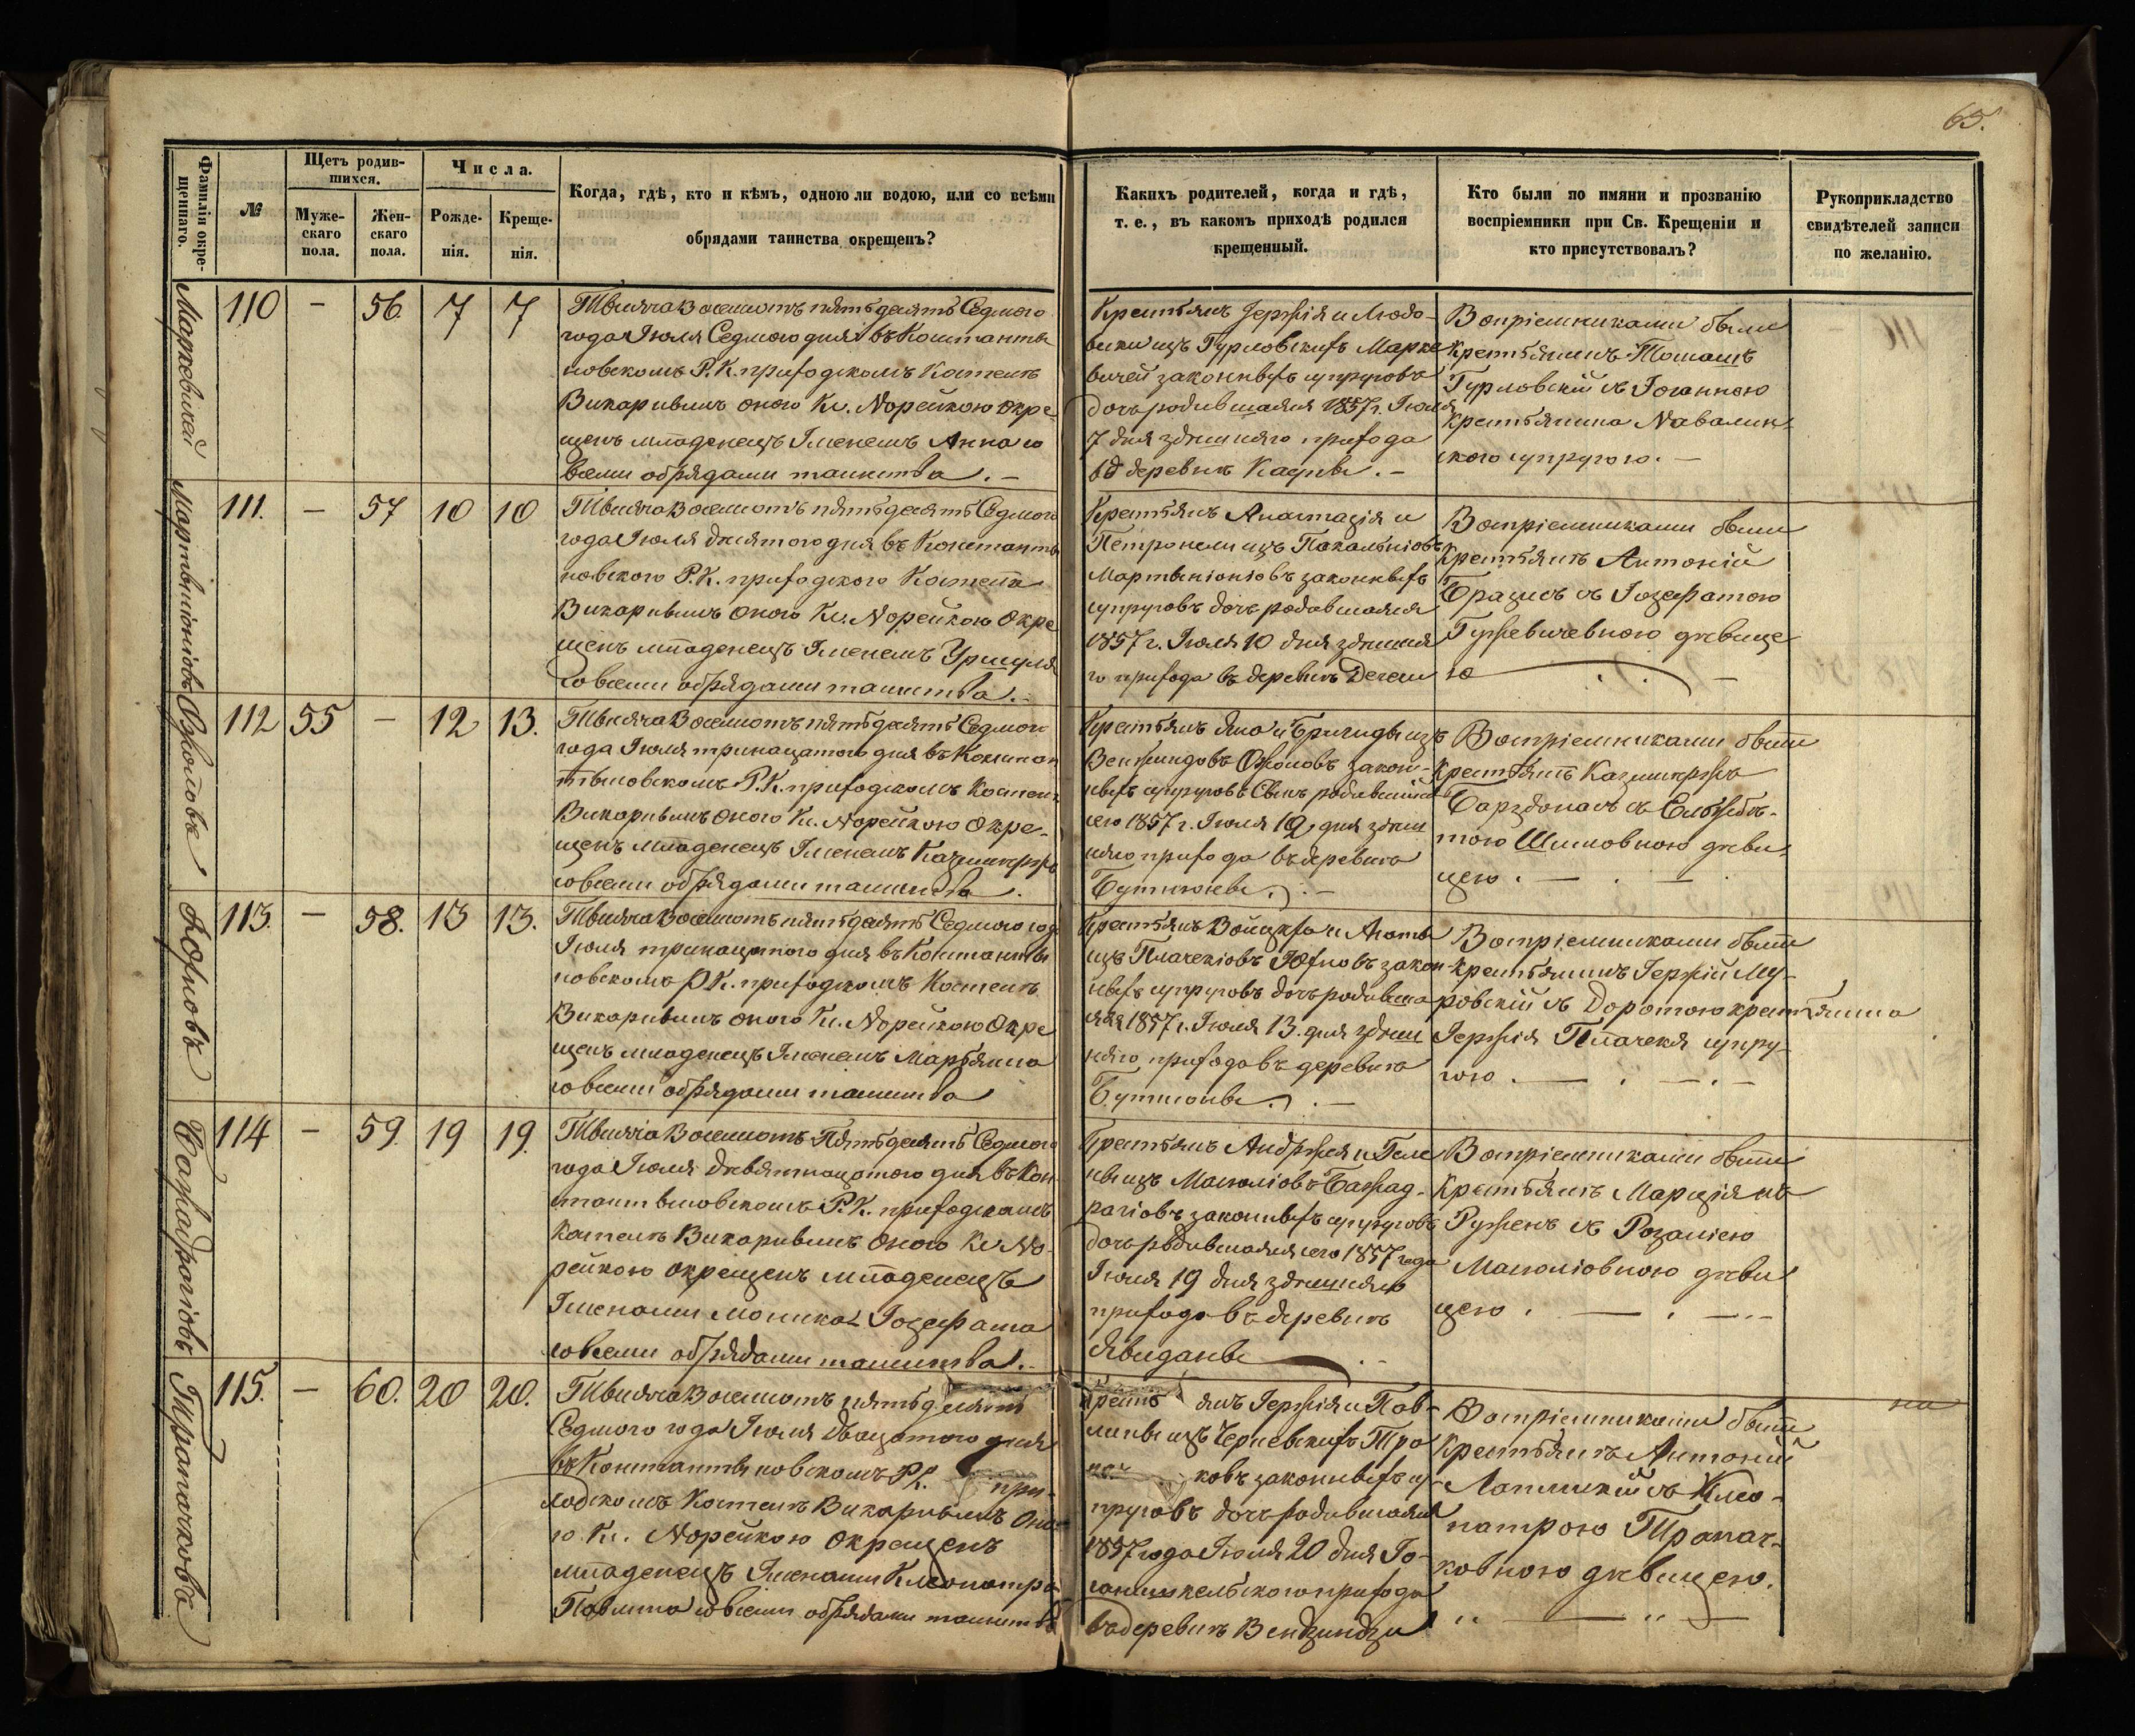 65.
Фамилія окре-
щеннаго.
№
Щетъ родив-
шихся.
Муже-
скаго
пола.
Жен-
скаго
пола.
Числа.
Рожде-
нія.
Креще-
нія.
Когда, гдѣ, кто и кѣмъ, одною ли водою, или со всѣми
обрядами таинства окрещенъ?
Какихъ родителей, когда и гдѣ,
т. е., въ какомъ приходѣ родился
крещенный.
Кто были по имяни и прозванію
воспріемники при Св. Крещеніи и
кто присутствовалъ?
Рукоприкладство
свидѣтелей записи
по желанію.
Маркевичей
110 — 56. 7 7
Тысяча восемсотъ пятьдесятъ Седмого
года Іюля Седмого дня въ Константы
новскомъ Р. К. приходскомъ Костелѣ
Викаріемъ оного Кс. Норейкою окре-
щенъ младенецъ Именемъ Анна со
всеми обрядами таинства. —
Крестьянъ Іержія и Людо-
вики изъ Гурловскихъ Марке
вичей законныхъ супруговъ
дочь родившаяся 1857 г. Іюля
7 дня здешняго прихода
въ деревнѣ Кауны. —
Вопріемниками были
крестьянинъ Томашъ
Гурловскій съ Іоанною
крестьянина Навалин-
ского супругою. —
Мартынионіовъ
111. — 57 10 10
Тысяча восемсотъ пятьдесятъ Седмого
года Іюля десятого дня въ Константы
новского Р. К. приходского Костела
Викаріемъ оного Кс. Норейкою окре
щенъ младенецъ Именемъ Уршуля
со всеми обрядами таинства. —
Крестьянъ Анастазія и
Петронели изъ Покальніовъ
Мартыніоніовъ законныхъ
супруговъ дочь родившаяся
1857 г. Іюля 10 дня здешня
го прихода въ деревнѣ
Воспріемниками были
крестьянъ Антоній
Бразисъ съ Іозефатою
Гужевичевною дѣвице
ю
Ожоловъ
112 55 — 12 13.
Тысяча восемсотъ пятьдесятъ Седмого
года Іюля тринацатого дня въ Констан
тыновскомъ Р. К. приходскомъ Костелѣ
Викаріемъ оного Кс. Норейкою окре-
щенъ младенецъ Именемъ Казимержъ
со всеми обрядами таинства.
Крестьянъ Яна и Бригиды изъ
Ожоловъ закон-
ныхъ супруговъ Сынъ родившийся
сего 1857 г. Іюля 12 дня здеш
няго прихода въ деревнѣ
Бутюны. —
Воспріемниками были
крестьянъ Казимержъ
Барздонасъ съ Ельжбѣ-
тою Шимовною дѣви-
цею. —
Юхновъ
113. — 58. 13 13.
Тысяча восемсотъ пятьдесятъ Седмого года
Іюля тринацатого дня въ Константы
новскомъ Р. К. приходскомъ Костелѣ
Викаріемъ оного Кс. Норейкою окре
щенъ младенецъ Именемъ Марьянна
со всеми обрядами таинства
Крестьянъ Войцѣха и Агаты
изъ Плачекіовъ Юхновъ закон
ныхъ супруговъ дочь родивша
яся 1857 г. Іюля 13. дня здеш
няго прихода въ деревнѣ
Бутюны. —
Воспріемниками были
крестьянинъ Іержій Му-
ровскій съ Доротою крестьянина
Іержія Плачекя супру-
гою. —
Бажадрагіовъ
114 — 59. 19 19.
Тысяча восемсотъ Пятьдесятъ Седмого
года Іюля девятнацатого дня въ Кон
стантыновскомъ Р. К. приходскомъ
Костелѣ Викаріемъ оного Кс. Но-
рейкою окрещенъ младенецъ
Именами Моника Іозефата
со всеми обрядами таинства. —
Крестьянъ Анджея и Геле
ны изъ Бажад-
рагіовъ законныхъ супруговъ
дочь родившаяся сего 1857 года
Іюля 19 дня здешняго
прихода въ деревнѣ
Явиданы
Воспріемниками были
Крестьянъ Марціянъ
Ружень съ Розаліею
дѣви
цею. —
Трапачковъ
115. — 60. 20 20.
Тысяча восемсотъ пятьдесятъ
Седмого года Іюля двацатого дня
въ Константыновскомъ Р. К. при-
ходскомъ Костелѣ Викаріемъ оно-
го Кс. Норейкою окрещенъ
младенецъ Именами Клеопатра
Павлина со всеми обрядами таинства
Крестьянъ Іержія и Пав-
лины изъ Черневскихъ Тра
пачковъ законныхъ су-
пруговъ дочь родившаяся
1857 года Іюля 20 дня Іо-
ганишкельского прихода
въ деревнѣ Вендзиндзи
Воспріемниками были
Крестьянъ Антоній
Лапинскій съ Клео-
патрою Трапач-
ковною дѣвицею.